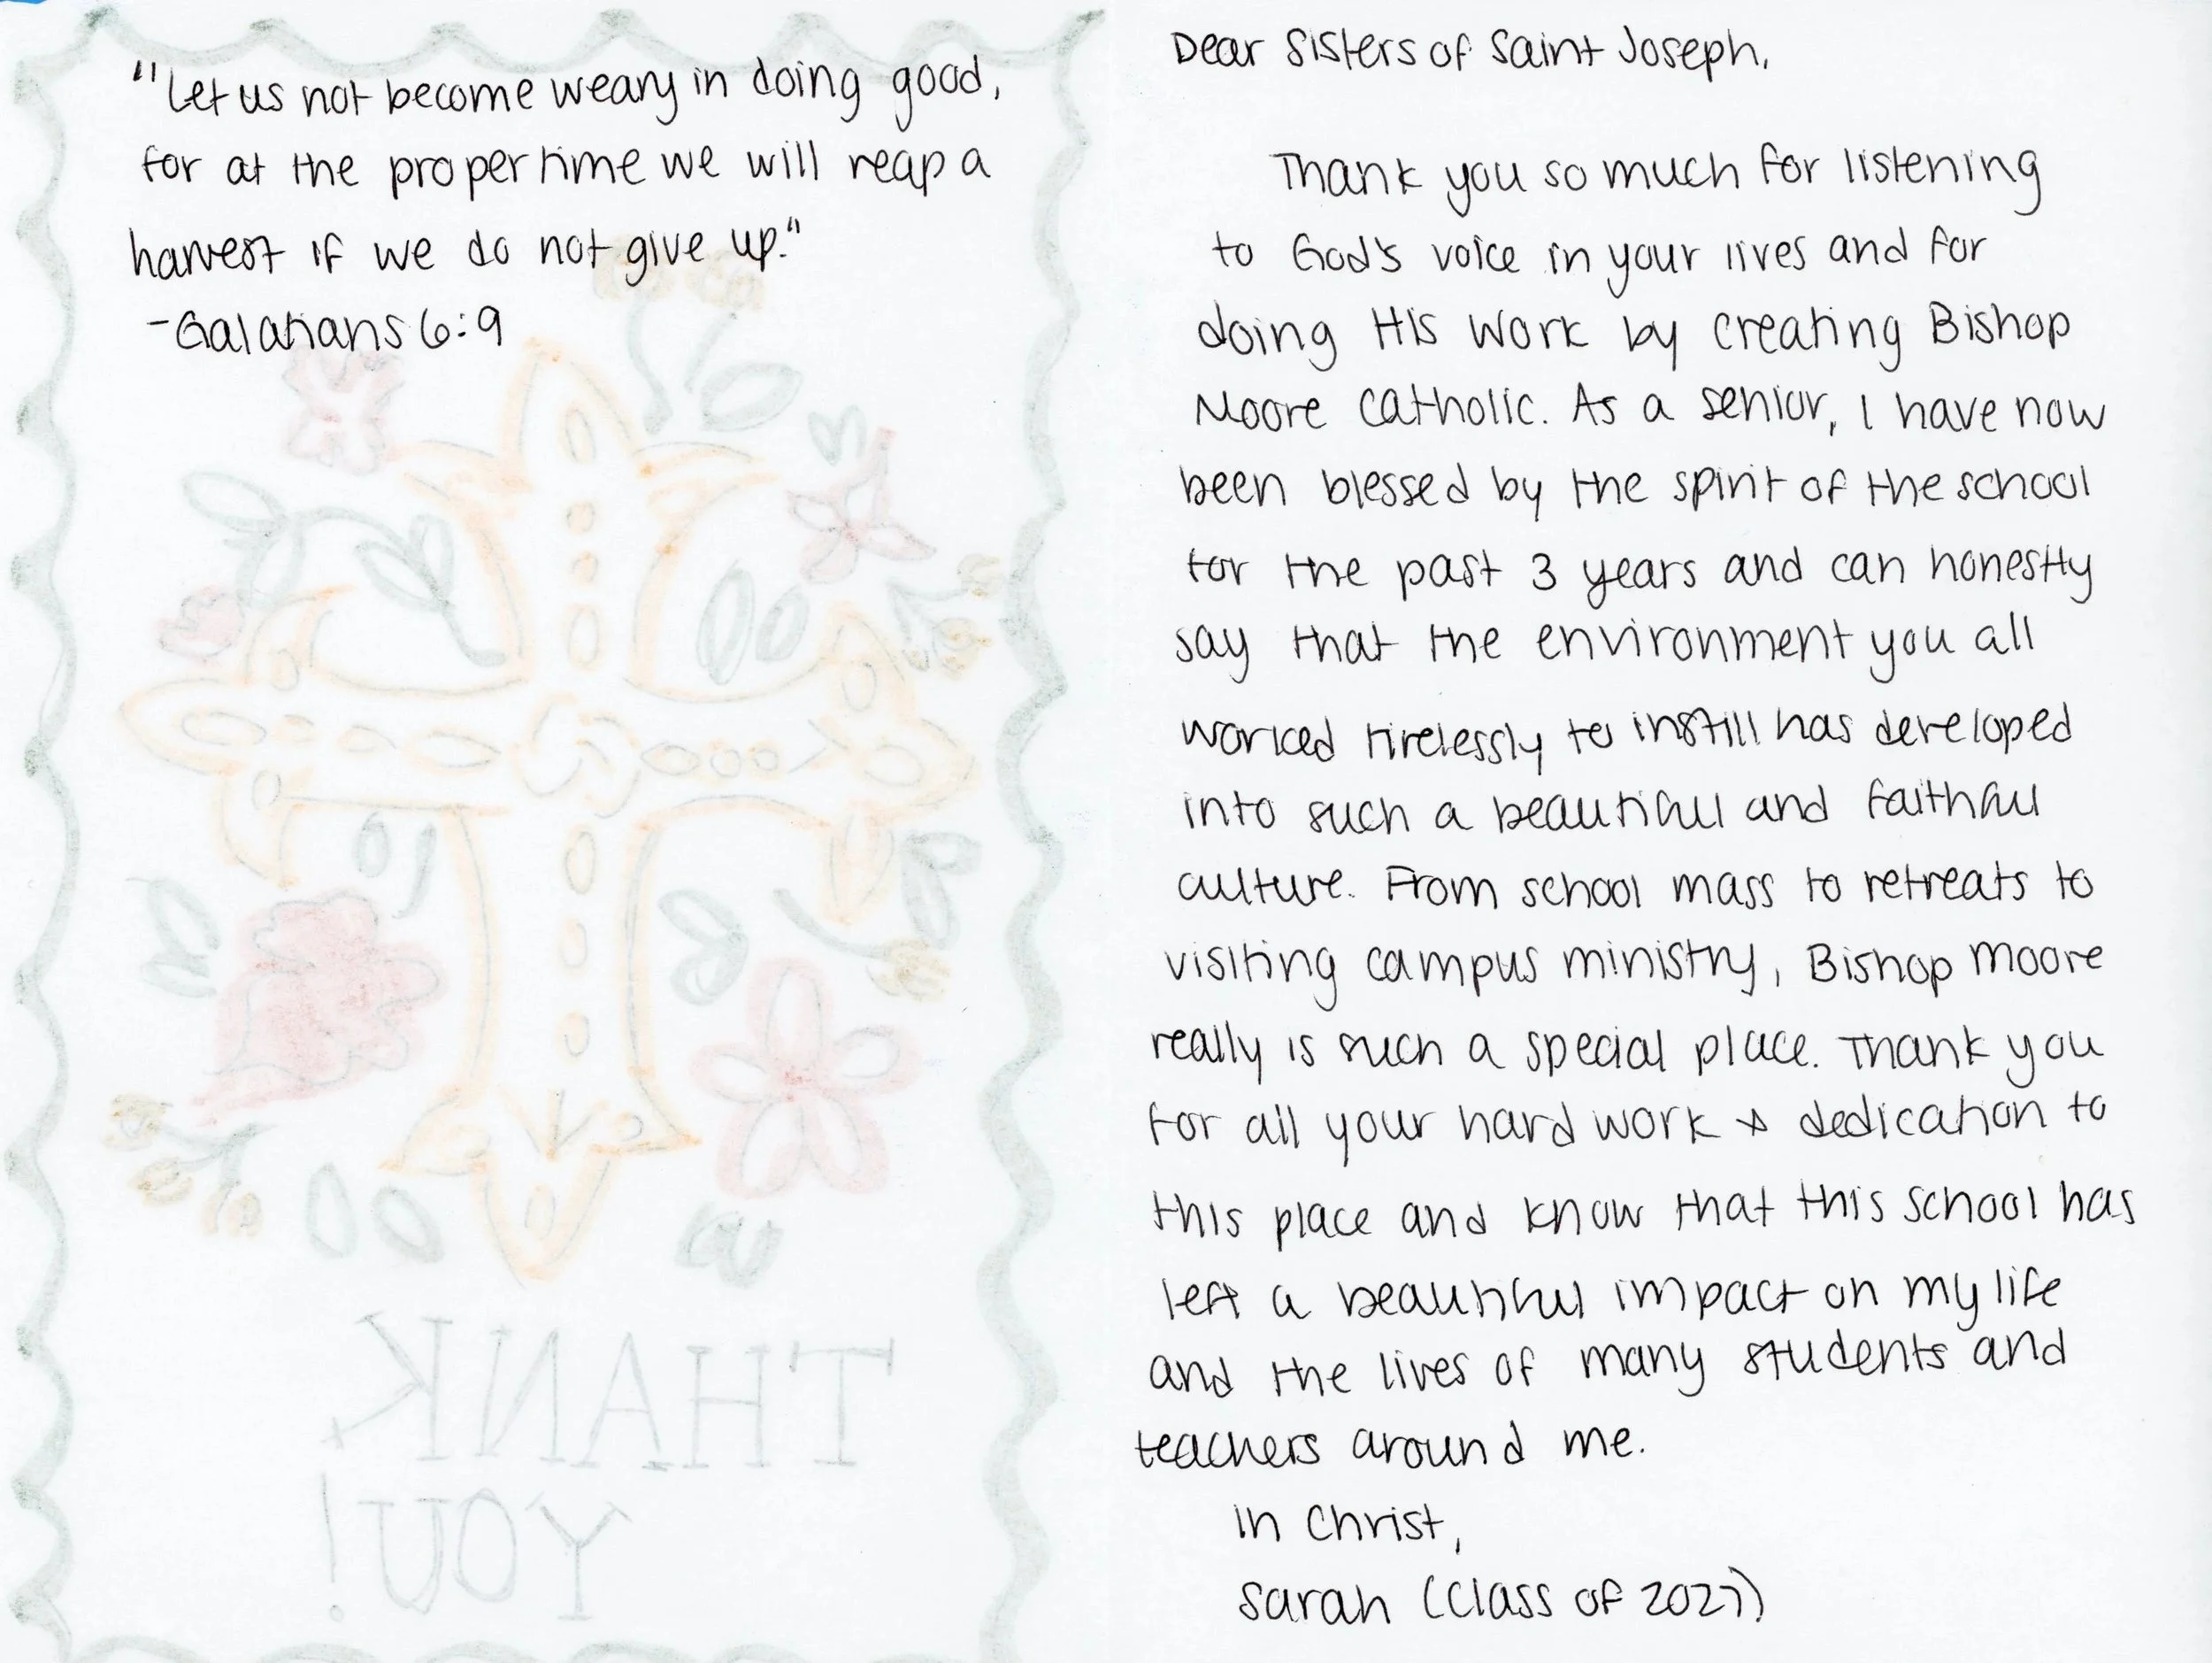 "Let us not become weary in doing good,
for at the proper time we will reap a
harvest if we do not give up."
-Galatians 6:9
THANK
YOU!
Dear Sisters of Saint Joseph,
Thank you so much for listening
to God's voice in your lives and for
doing His work by creating Bishop
Moore Catholic. As a senior, I have now
been blessed by the spirit of the school
for the past 3 years and can honestly
say that the environment you all
worked tirelessly to instill has developed
into such a beautiful and faithful
culture. From school mass to retreats to
visiting campus ministry, Bishop Moore
really is such a special place. Thank you
for all your hard work & dedication to
this place and know that this school has
left a beautiful impact on my life
and the lives of many students and
teachers around me.
In Christ,
Sarah (Class of 2027)